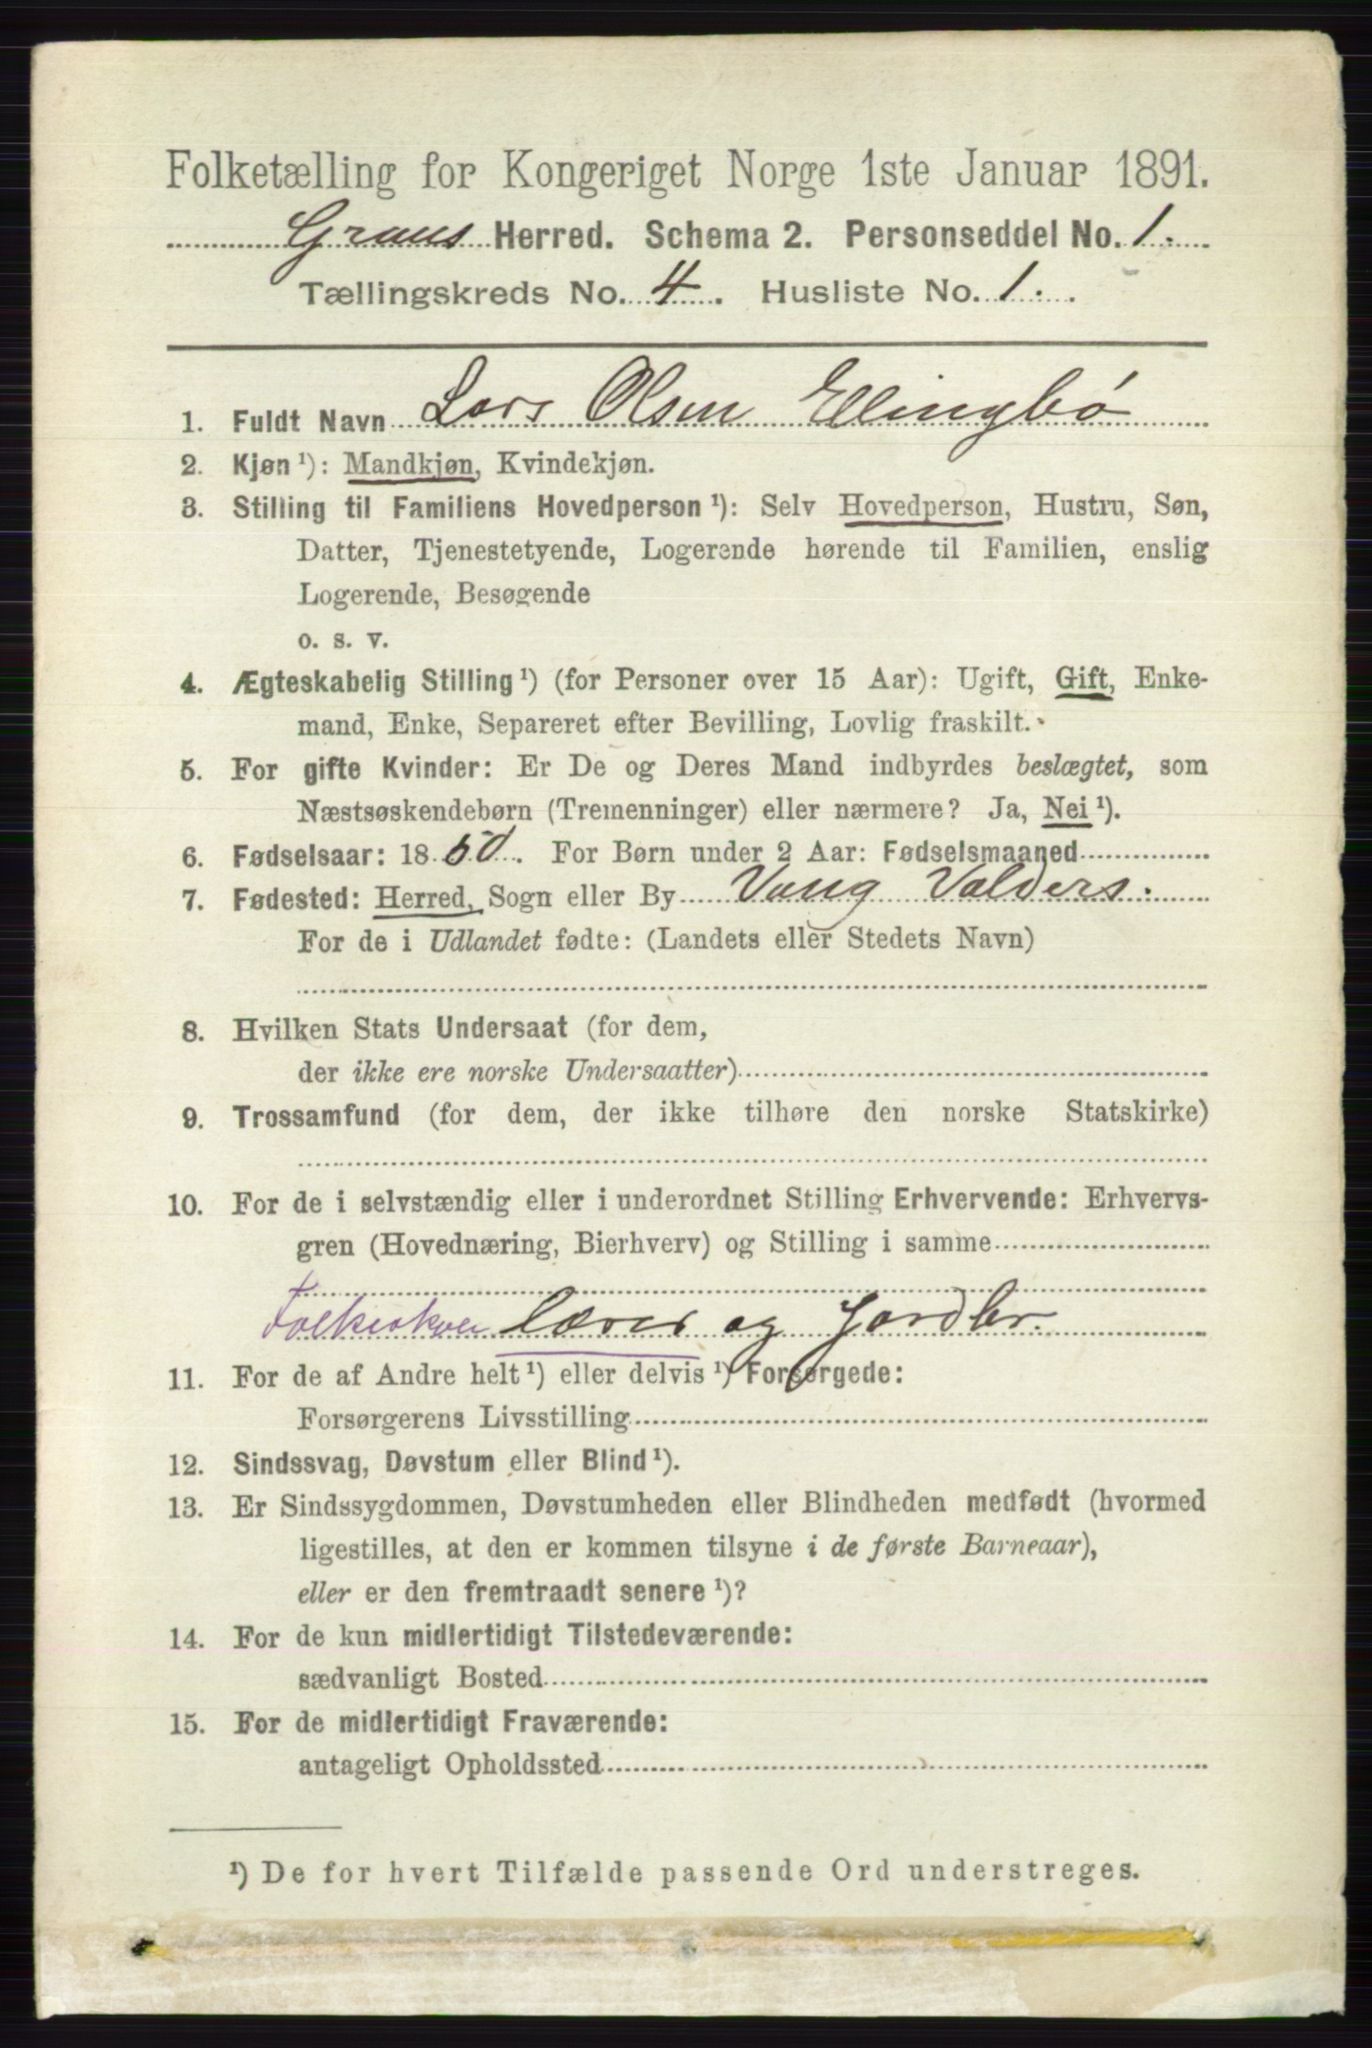 Folketælling for Kongeriget Norge 1ste Januar 1891.
Grans Herred. Schema 2. Personseddel No. 1.
Tællingskreds No. 4. Husliste No. 1.
1. Fuldt Navn Lars Olsen Ellingbø
2. Kjøn ¹): Mandkjøn, Kvindekjøn.
3. Stilling til Familiens Hovedperson ¹): Selv Hovedperson, Hustru, Søn,
Datter, Tjenestetyende, Logerende hørende til Familien, enslig
Logerende, Besøgende
o. s. v.
4. Ægteskabelig Stilling ¹) (for Personer over 15 Aar): Ugift, Gift, Enke-
mand, Enke, Separeret efter Bevilling, Lovlig fraskilt.
5. For gifte Kvinder: Er De og Deres Mand indbyrdes beslægtet, som
Næstsøskendebørn (Tremenninger) eller nærmere? Ja, Nei ¹).
6. Fødselsaar: 1850. For Børn under 2 Aar: Fødselsmaaned
7. Fødested: Herred, Sogn eller By Vang Valders.
For de i Udlandet fødte: (Landets eller Stedets Navn)
8. Hvilken Stats Undersaat (for dem,
der ikke ere norske Undersaatter)
9. Trossamfund (for dem, der ikke tilhøre den norske Statskirke)
10. For de i selvstændig eller i underordnet Stilling Erhvervende: Erhvervs-
gren (Hovednæring, Bierhverv) og Stilling i samme
Folkeskole lærer og Jordbr.
11. For de af Andre helt ¹) eller delvis ¹) Forsørgede:
Forsørgerens Livsstilling
12. Sindssvag, Døvstum eller Blind ¹).
13. Er Sindssygdommen, Døvstumheden eller Blindheden medfødt (hvormed
ligestilles, at den er kommen tilsyne i de første Barneaar),
eller er den fremtraadt senere ¹)?
14. For de kun midlertidigt Tilstedeværende:
sædvanligt Bosted
15. For de midlertidigt Fraværende:
antageligt Opholdssted
¹) De for hvert Tilfælde passende Ord understreges.